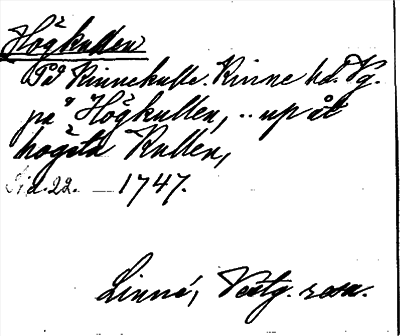 Högkullen
På Kinnekulle. Kinne hd. Vg.
på "Högkullen, .. up åt
högsta Kullen,
Sid. 22. — 1747.
Linné, Vestg. resa.